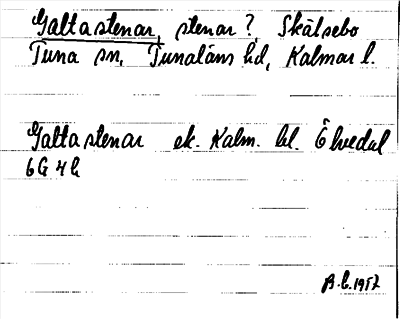 Galtastenar, stenar?, Skälsebo
Tuna sn, Tunaläns hd, Kalmar l.
Galtastenar ek. Kalm. bl. Ölvedal
6G 4b
1957